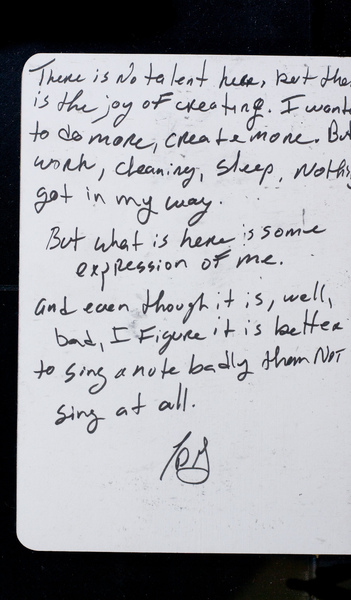 There is No talent here, but the
is the joy of creating. I want
to do more, create more. But
work, cleaning, sleep, Nothing
get in my way.
But what is here is some
expression of me.
and even though it is, well,
bad, I Figure it is better
to sing a note badly then NOT
sing at all.